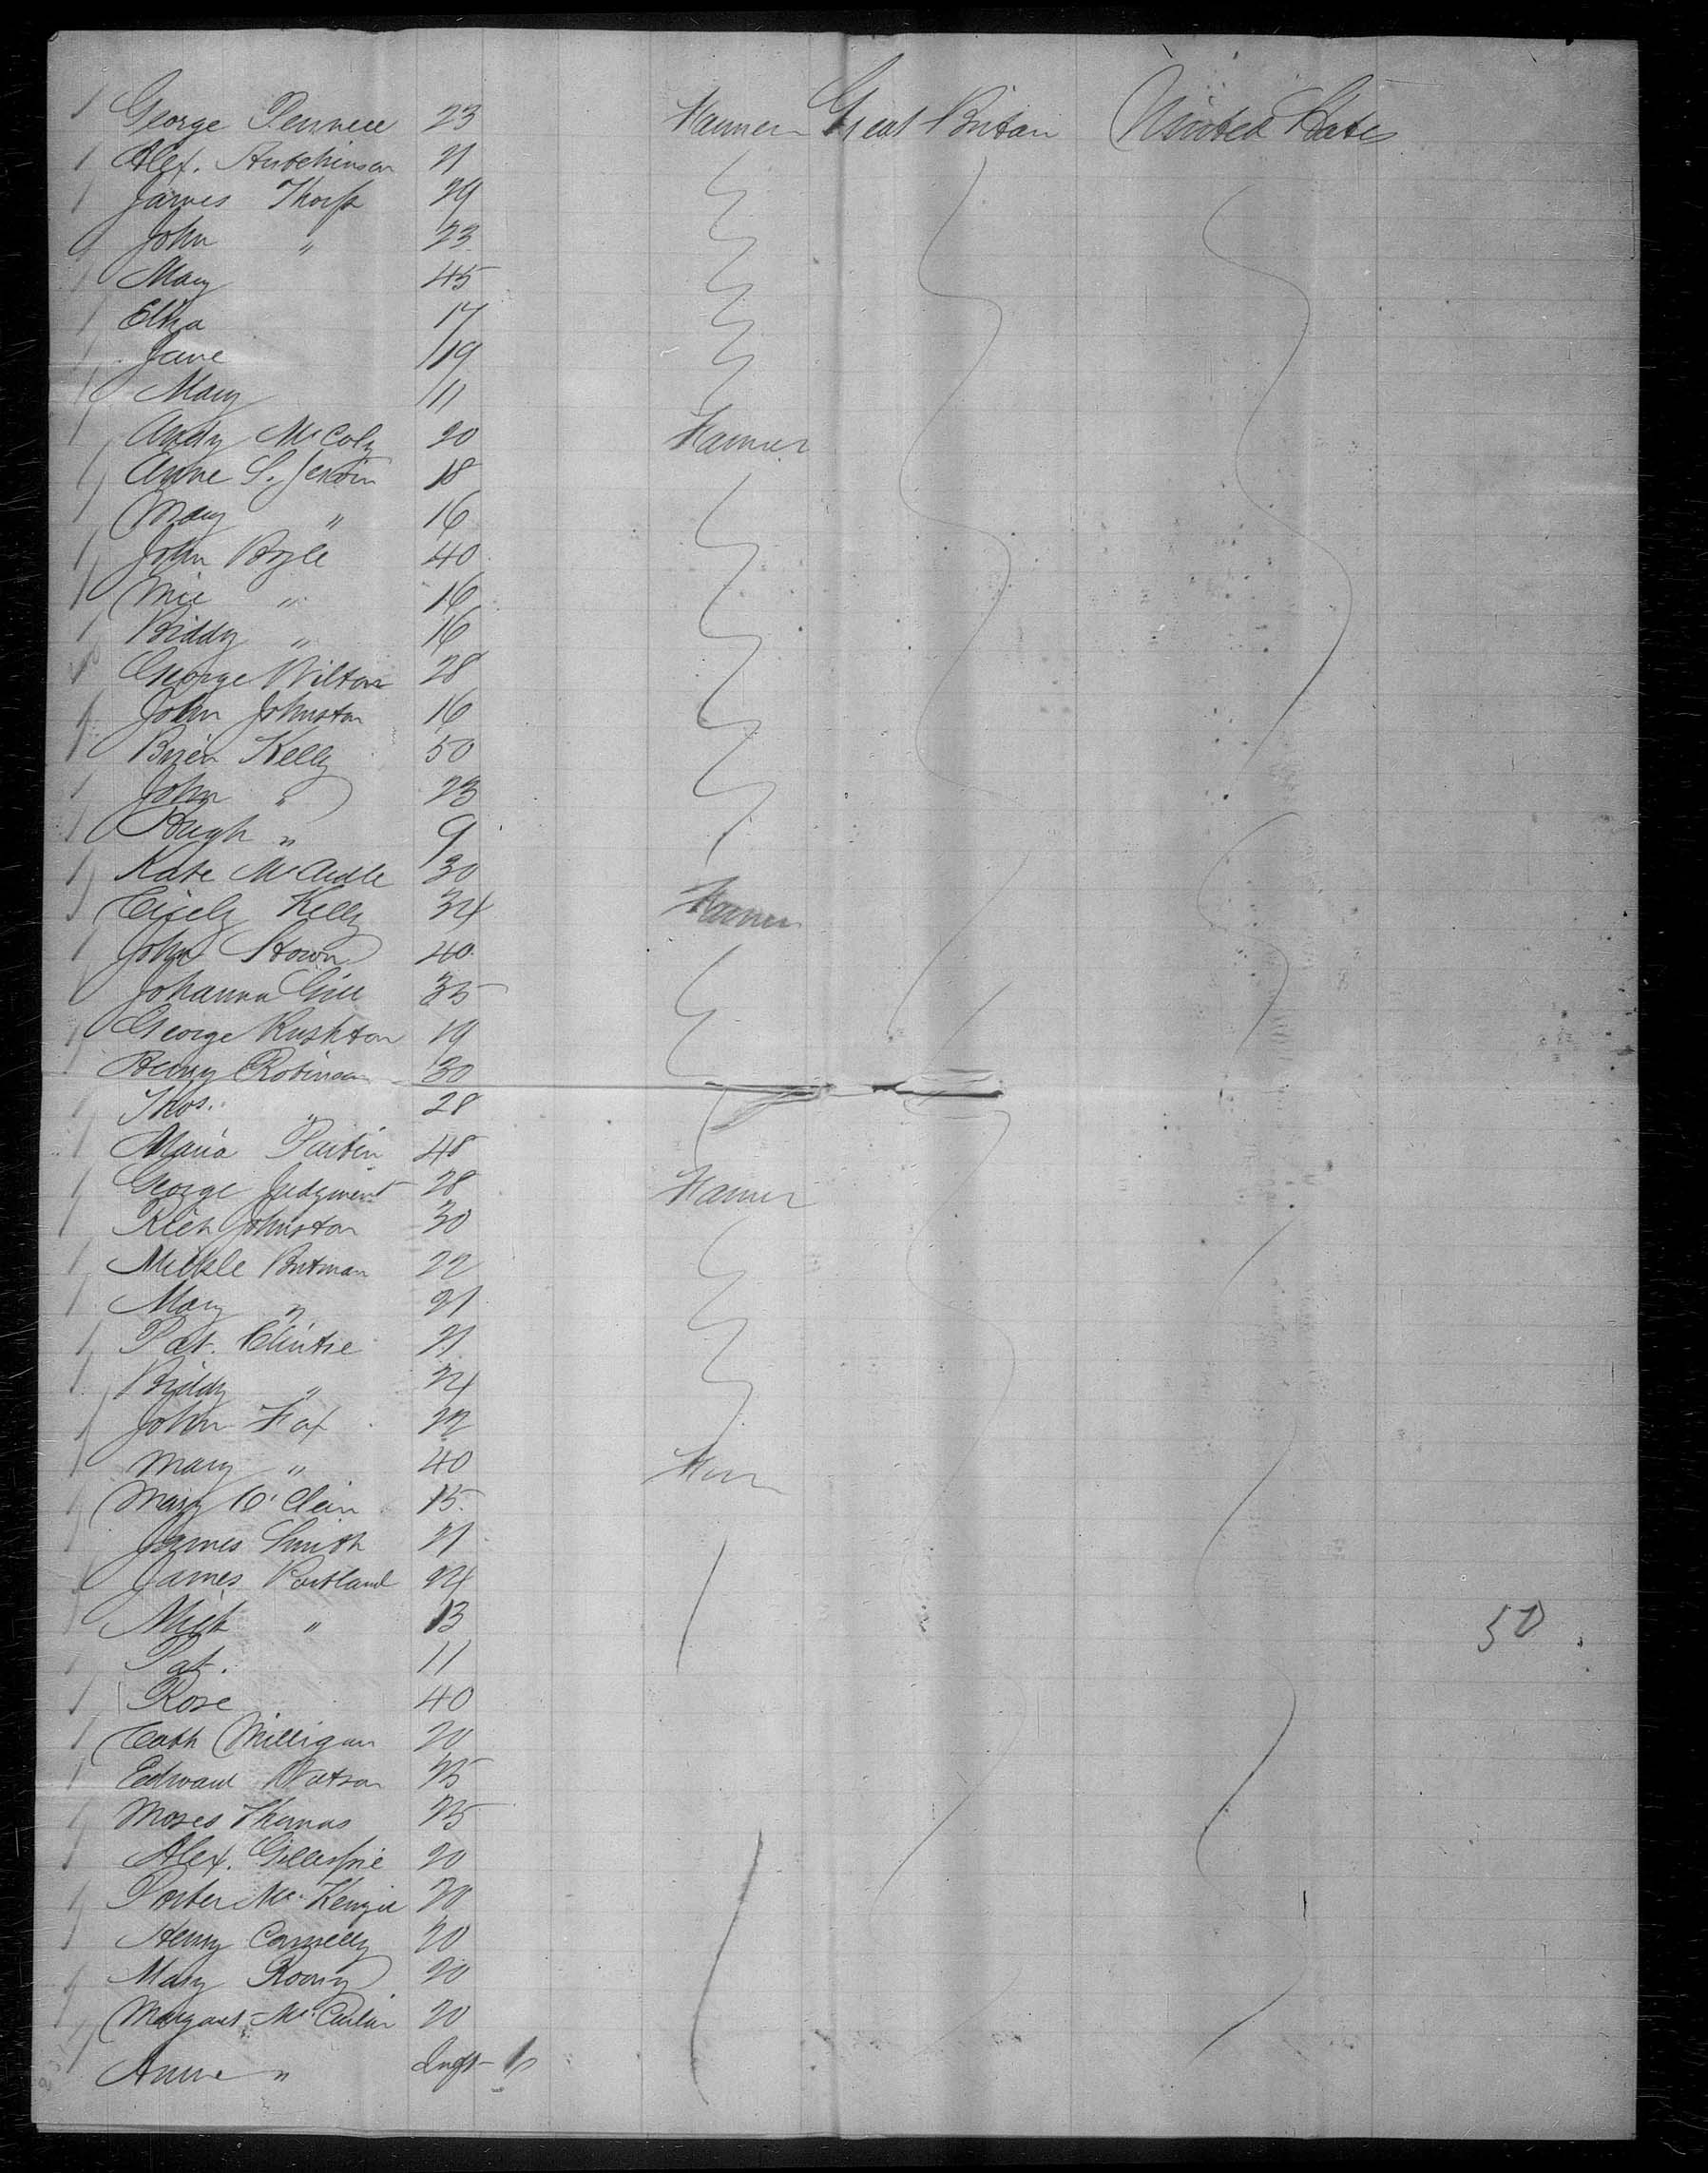 George Pennell 23 Farmer Great Britain United States
Alex. Hutchinson 21
James Thorp 29
John " 23
Mary 45
Eliza 17
Jane 19
Mary 11
Andy McColy 20 Farmer
Anne S. 18
Mary " 16
John Boyle 40
Mic " 16
Biddy " 16
George Wilton 28
John Johnston 16
Brien Kelly 50
John " 23
Hugh " 9
Kate McArdle 30
Cicely Kelly 34 Farmer
John 40
Johanna Gill 35
George Rushton 19
Henry Robinson 30
Thos. " 28
Maria 48
George Judgment 28 Farmer
Rich Johnston 30
Butman 22
Mary " 21
Pat. Clintre 21
Biddy " 24
John Fox 22
Mary " 40
Mary O'Clein 15
James Smith 21
James Portland 24
Mick " 13 50
Pat. 11
Rose 40
Cath Milligan 20
Edward Watson 25
Moses Thomas 25
Alex. Gillespie 20
Porter McKenzie 20
Henry Connelly 20
Mary Roony 20
Margaret Mc 20
Anne " Inft